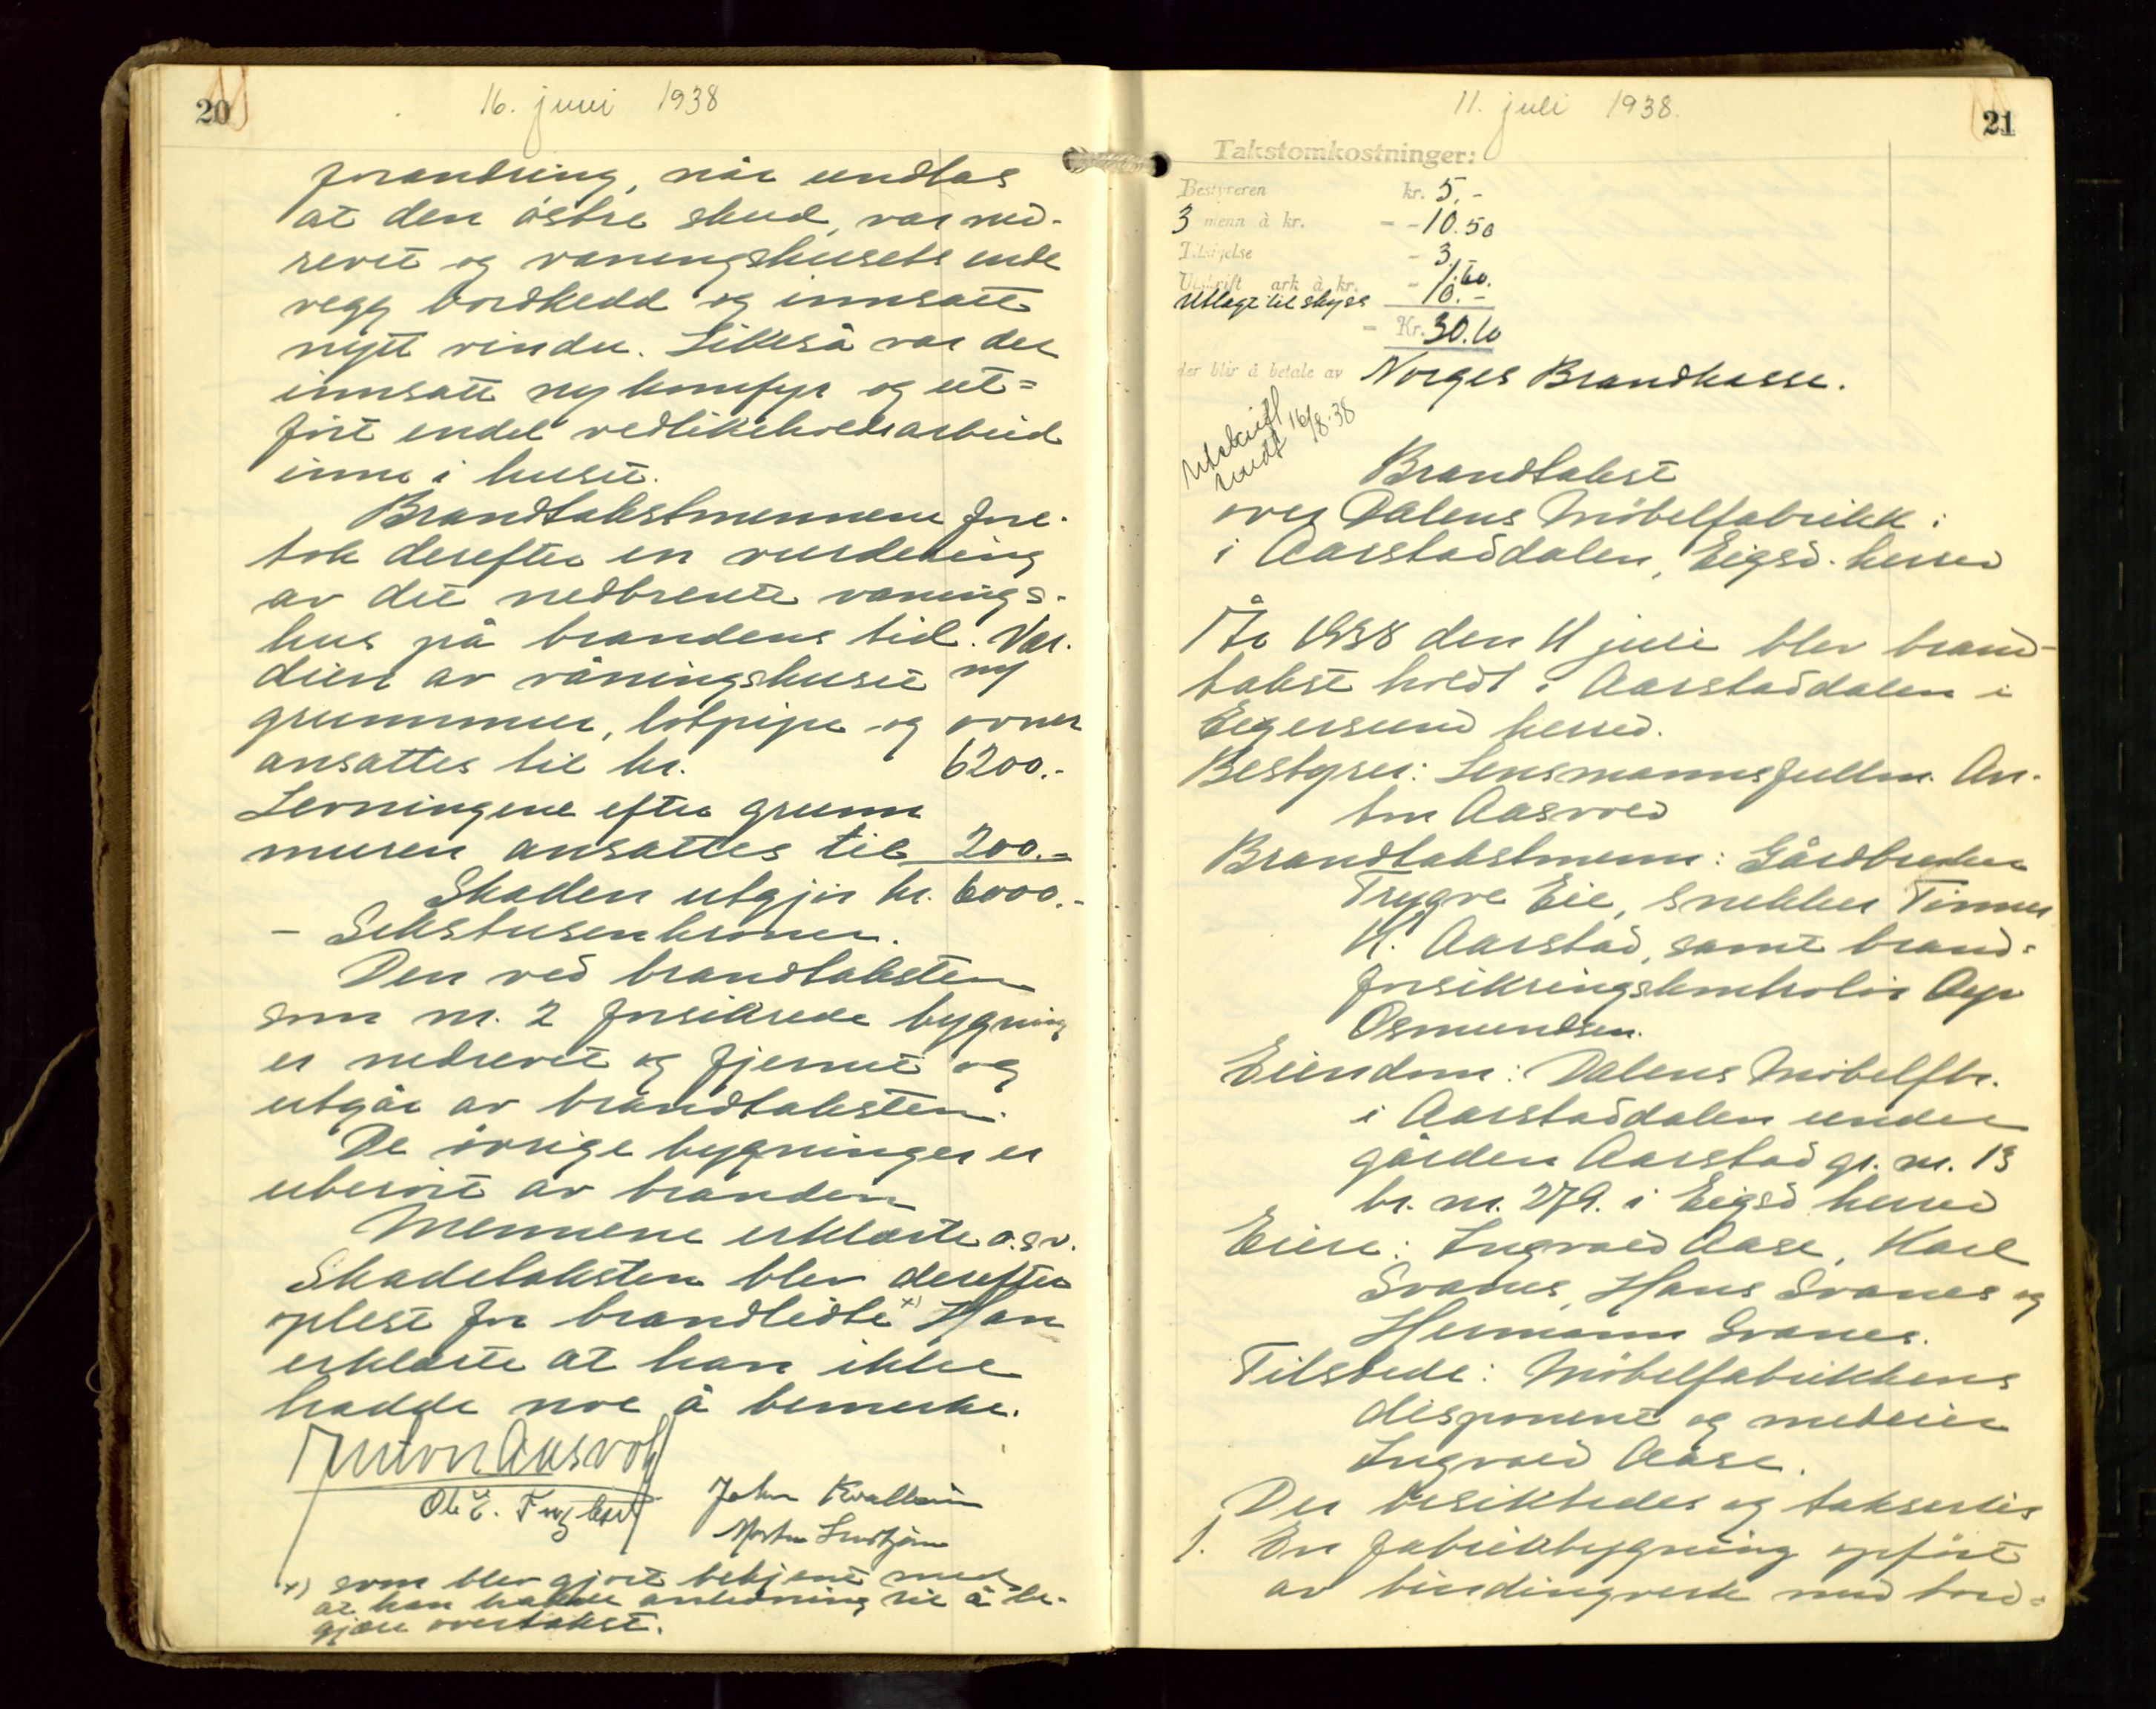 20
16. juni 1938
forandring, når undtas
at den östre skud, var ned-
revet og vaningshusets ende
vegg bordkledd og innsatt
nytt vindu. Likeså var der
innsatt ny komfyr og ut=
fört endel vedlikeholdsarbeid
inne i huset.
Brandtakstmennene fore-
tok derefter en vurdering
av det nedbrente vanings-
hus på brandens tid. Ver-
dien av våningshuset m/
grunnmur, lotpipe og ovner
ansattes til kr. 6200.-
Levningene efter grunn
muren ansattes til 200.-
Skaden utgjör kr. 6000.-
- Sekstusenkroner.
Den ved brandtaksten
som nr. 2 forsikrede bygning
er nedrevet og fjernet og
utgår av brandtaksten.
De övrige bygninger er
uberört av branden
Mennene erklærte o.s.v.
Skadetaksten blev derefter
oplest for brandlidte x) Han
erklærte at han ikke
hadde noe å bemerke.
Anton Aasvold
John Kvalheim
x) som blev gjort bekjent med
at han hadde anledning til å be-
gjære overtakst.
21
11. juli 1938.
Takstomkostninger:
Bestyreren kr. 5.-
3 menn à kr. - -10.50
Tilsigelse - 3.-
Utskrift ark à kr. - 1.60.
Utlegg til skyss 10.-
= Kr. 30.10
der blir å betale av Norges Brandkasse.
Utskrift
sendt 16/8.38
Brandtakst
over Dalens Möbelfabrikk i
i Aarstaddalen, Eigsd. herred
År 1938 den 11 juli blev brand-
takst holdt i Aarstaddalen i
Eigersund herred.
Bestyrer: Lensmannsfullm. An-
ton Aasvold
Brandtakstmenn: Gårdbruker
Trygve Eie, snekker Tönnes
K. Aarstad, samt brand=
forsikringskontrolör
Osmundsen.
Eiendom: Dalens Möbelfbr.
i Aarstaddalen under
gården Aarstad gr. nr. 13
br. nr. 279. i Eigsd herred
Eiere: Ingvald Aase, Karl
Svanes, Hans Svanes og
Hermann Svanes.
Tilstede: Möbelfabrikkens
disponent og medeier
Ingvald Aase.
Der besiktedes og taksertes
1. En fabrikbygning opfört
av bindingverk med bord=